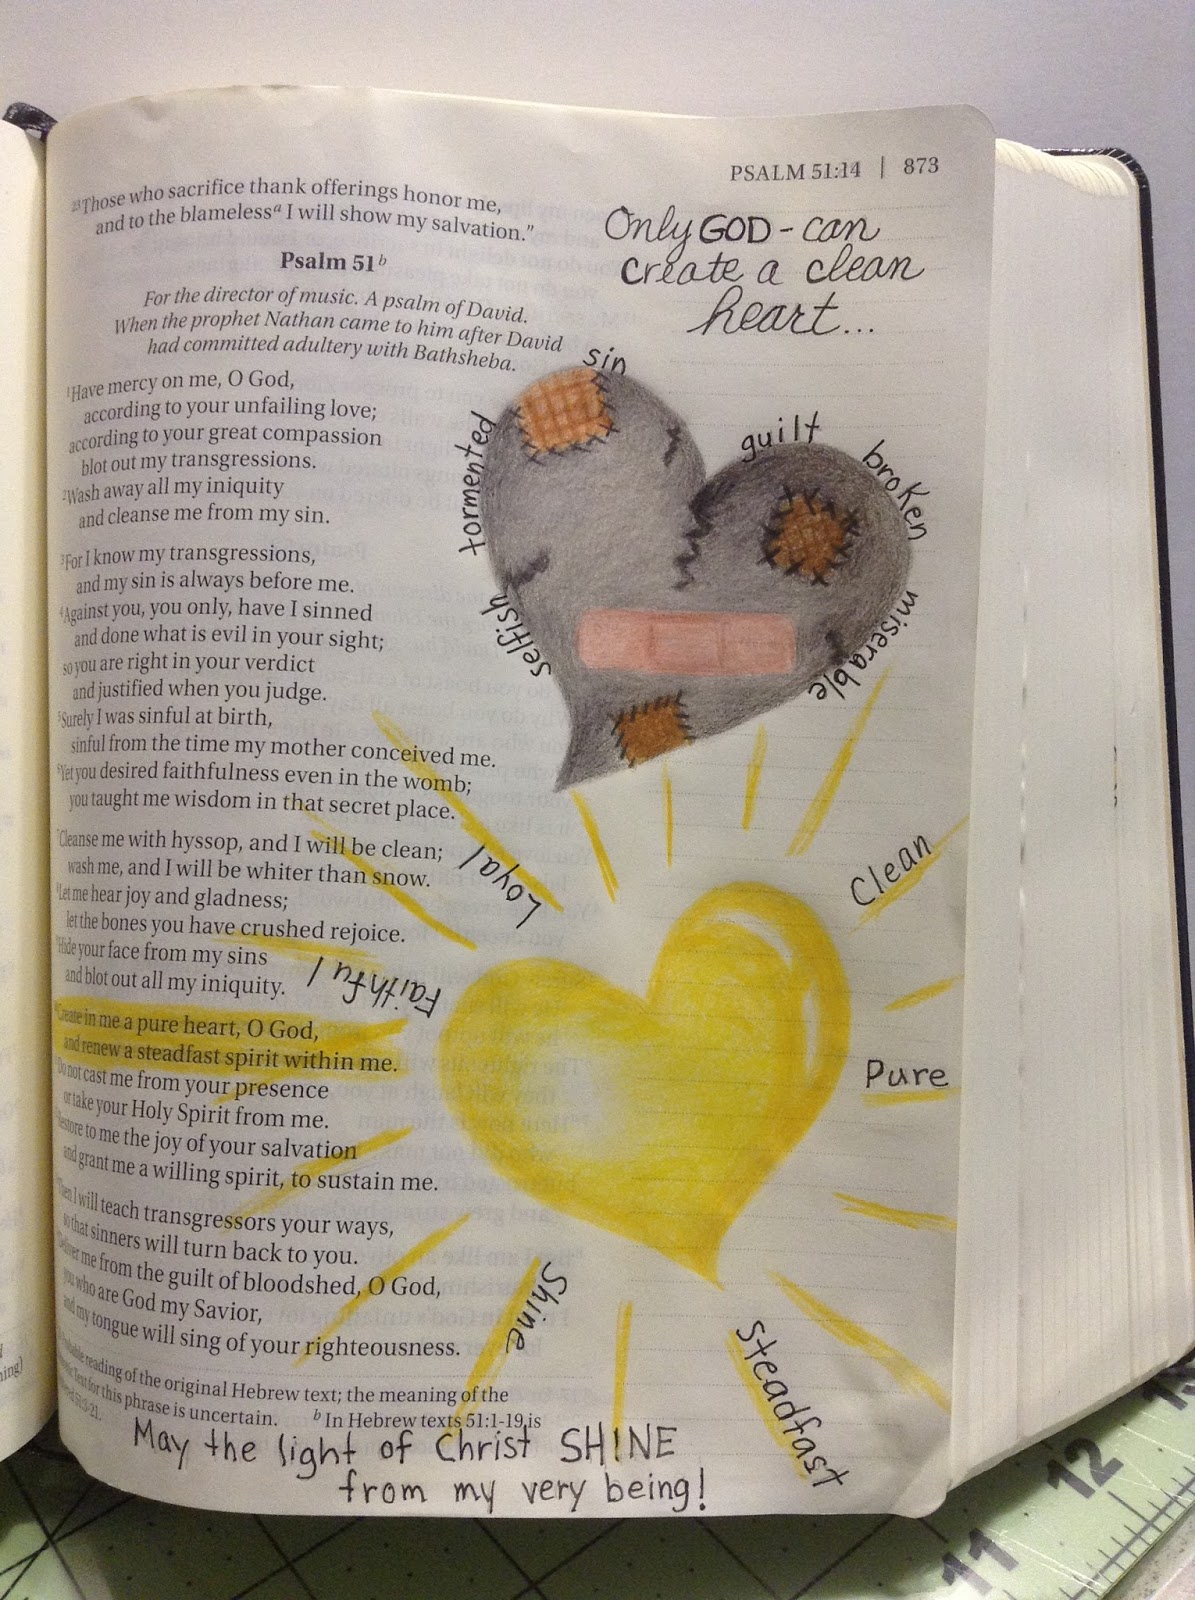 PSALM 51:14 | 873
23 Those who sacrifice thank offerings honor me,
and to the blameless a I will show my salvation."
Psalm 51 b
For the director of music. A psalm of David.
When the prophet Nathan came to him after David
had committed adultery with Bathsheba.
1 Have mercy on me, O God,
according to your unfailing love;
according to your great compassion
blot out my transgressions.
2 Wash away all my iniquity
and cleanse me from my sin.
3 For I know my transgressions,
and my sin is always before me.
4 Against you, you only, have I sinned
and done what is evil in your sight;
so you are right in your verdict
and justified when you judge.
5 Surely I was sinful at birth,
sinful from the time my mother conceived me.
6 Yet you desired faithfulness even in the womb;
you taught me wisdom in that secret place.
7 Cleanse me with hyssop, and I will be clean;
wash me, and I will be whiter than snow.
8 Let me hear joy and gladness;
let the bones you have crushed rejoice.
9 Hide your face from my sins
and blot out all my iniquity.
Create in me a pure heart, O God,
and renew a steadfast spirit within me.
Do not cast me from your presence
or take your Holy Spirit from me.
Restore to me the joy of your salvation
and grant me a willing spirit, to sustain me.
Then I will teach transgressors your ways,
so that sinners will turn back to you.
Deliver me from the guilt of bloodshed, O God,
you who are God my Savior,
and my tongue will sing of your righteousness.
reading of the original Hebrew text; the meaning of the
text for this phrase is uncertain. b In Hebrew texts 51:1-19 is
51:3-21.
Only GOD - can
create a clean
heart...
sin
guilt
broken
tormented
selfish
miserable
Loyal
Clean
Faithful
Pure
Shine
Steadfast
May the light of Christ SH!NE
from my very being!
12
11